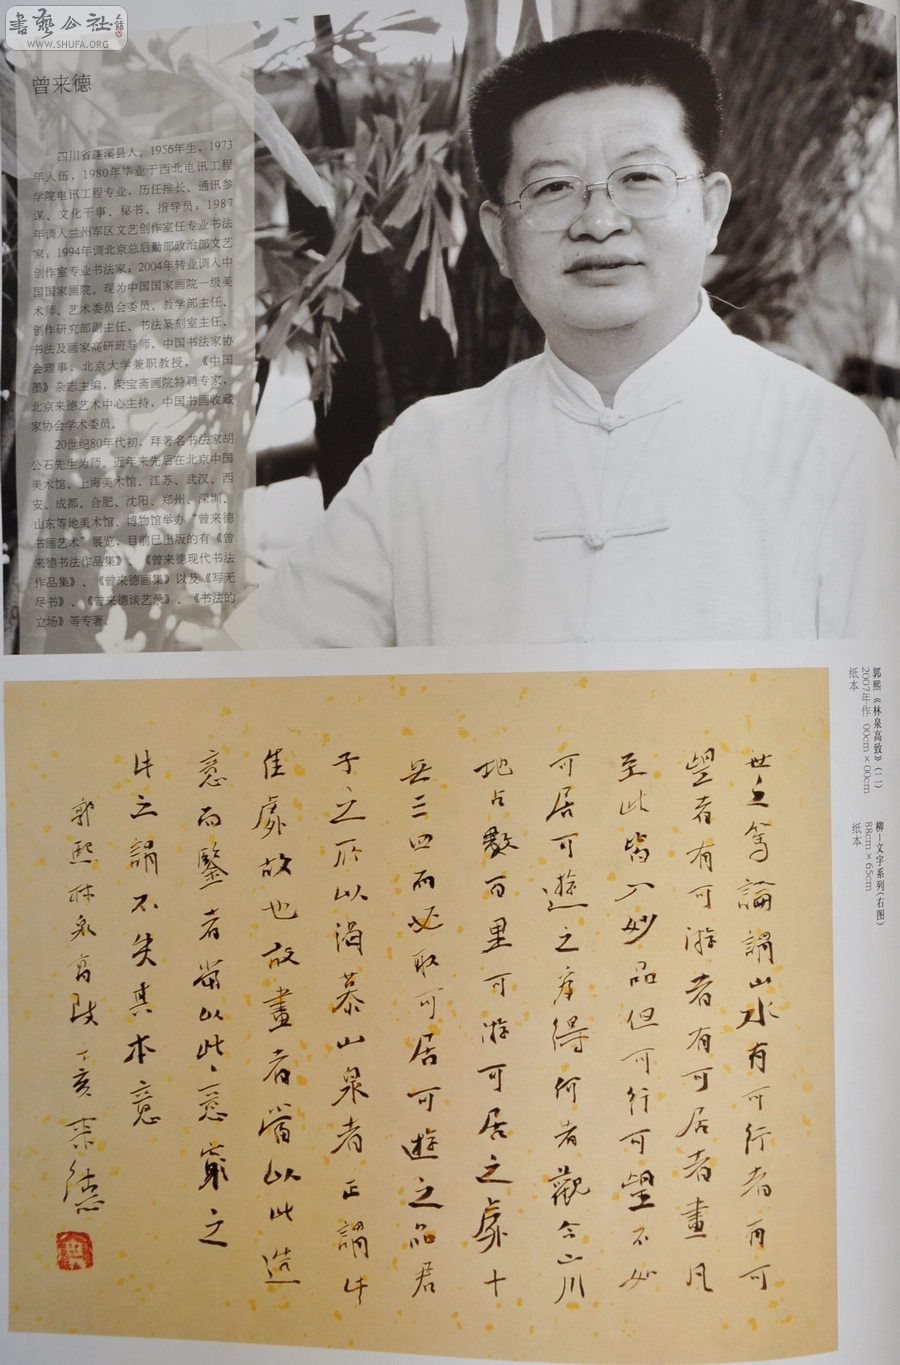 書藝公社
WWW.SHUFA.ORG
曾来德
四川省蓬溪县人。1956年生，1973
年入伍，1980年毕业于西北电讯工程
学院电讯工程专业，历任排长、通讯参
谋、文化干事、秘书、指导员；1987
年调入兰州军区文艺创作室任专业书法
家；1994年调北京总后勤部政治部文艺
创作室专业书法家；2004年转业调入中
国国家画院。现为中国国家画院一级美
术师、艺术委员会委员、教学部主任、
创作研究部副主任、书法篆刻室主任、
书法及画家高研班导师、中国书法家协
会理事、北京大学兼职教授，《中国
墨》杂志主编，荣宝斋画院特聘专家，
北京来德艺术中心主持，中国书画收藏
家协会学术委员。
20世纪80年代初，拜著名书法家胡
公石先生为师。近年来先后在北京中国
美术馆、上海美术馆、江苏、武汉、西
安、成都、合肥、沈阳、郑州、深圳、
山东等地美术馆、博物馆举办“曾来德
书画艺术”展览，目前已出版的有《曾
来德书法作品集》、《曾来德现代书法
作品集》、《曾来德画集》以及《写无
尽书》、《曾来德谈艺录》、《书法的
立场》等专著。
郭熙《林泉高致》（二）
2007年作 00cm×00cm
纸本
柳—文字系列（右图）
88cm×65cm
纸本
世之篤論謂山水有可行者有可
望者有可游者有可居者畫凡
至此皆入妙品但可行可望不如
可居可遊之為得何者觀今山川
地占數百里可游可居之處十
無三四而必取可居可遊之品君
子之所以渴慕山泉者正謂此
佳處故也故畫者當以此造
意而鑒者當以此意窮之
此之謂不失其本意
郭熙林泉高致 丁亥 來德